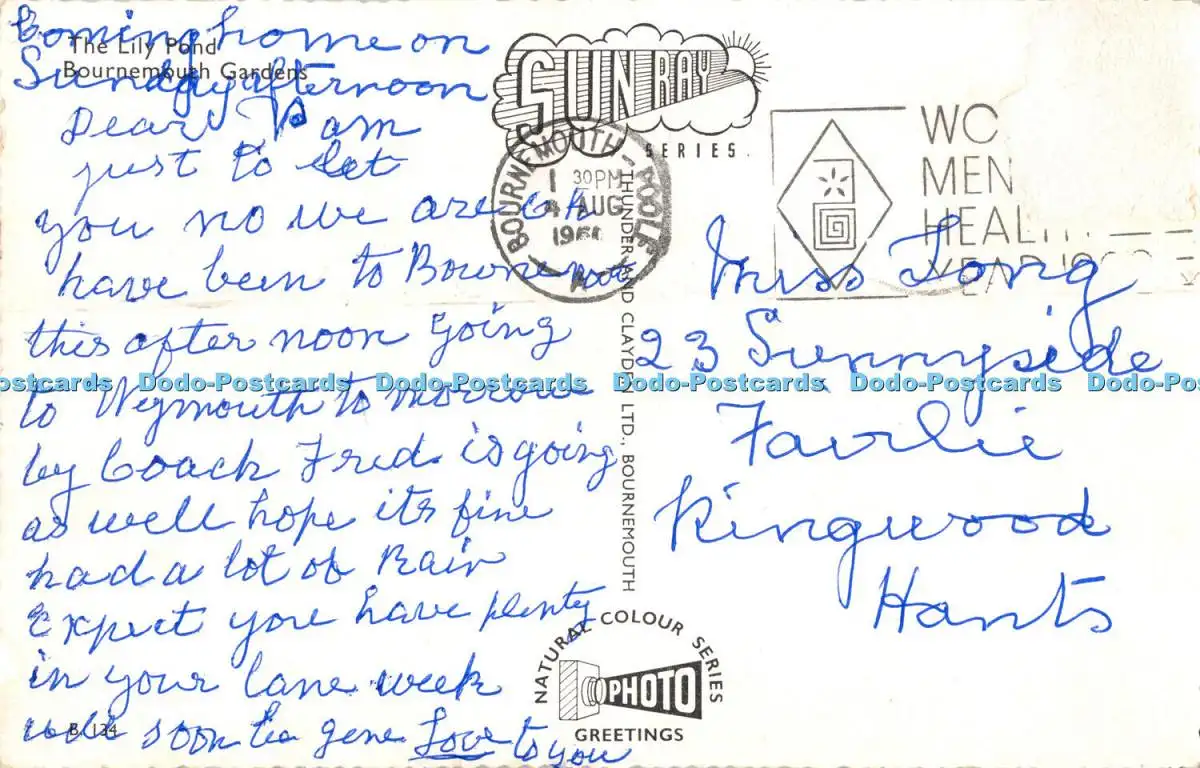 Coming home on
Sunday afternoon
The Lily Pond
Bournemouth Gardens
Dear Pam
just to let
you no we are O.K
have been to Bournemouth
this after noon going
to Weymouth to morrow
by Coach Fred is going
as well hope its fine
had a lot of Rain
Expect you have plenty
in your lane week
will soon be gone Love to you
B. 124
SUN RAY
SERIES.
BOURNEMOUTH-POOLE
1 30PM
AUG
196
WO
MEN
HEAL
YEAR 19
THUNDER AND CLAYDEN LTD., BOURNEMOUTH
Miss Long
23 Sunnyside
Fairlie
Ringwood
Hants
NATURAL COLOUR SERIES
PHOTO
GREETINGS
Dodo-Postcards Dodo-Postcards Dodo-Postcards Dodo-Postcards Dodo-Postcards